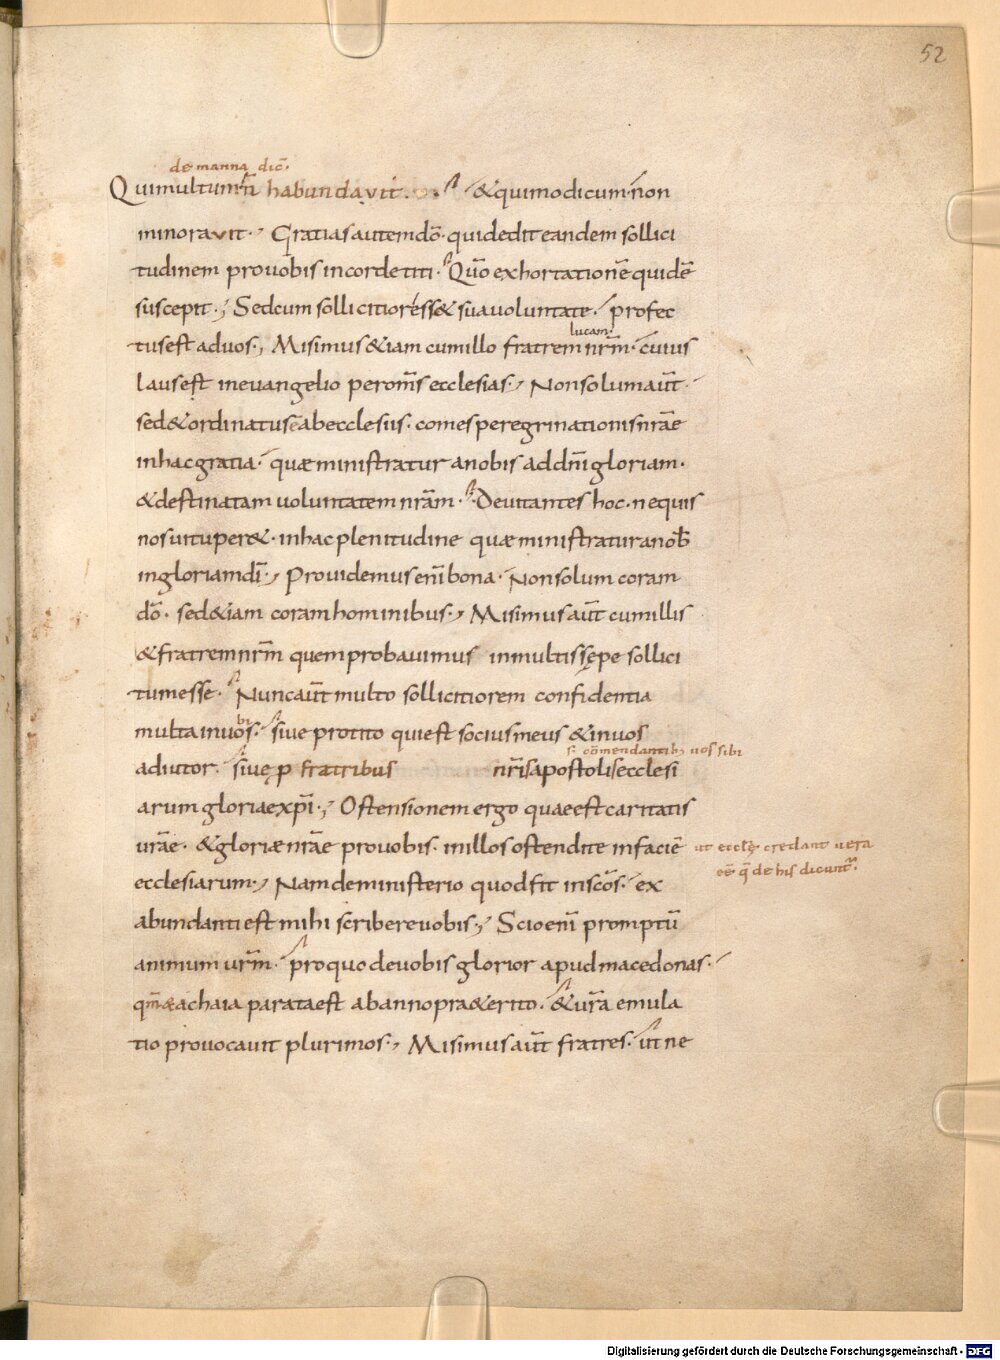 52
de manna dic̄.
Qui multum n̄ habundavit. & qui modicum non
minoravit. Gratias autem dō. qui dedit eandem sollici
tudinem pro vobis in corde titi. Quō exhortationē quidē
suscepit; Sed cum sollicitior ess& sua voluntate. profec
lucam.
tus est ad vos; Misimus &iam cum illo fratrem nr̄m. cuius
laus est in evangelio per om̄s ecclesias; Non solum aūt.
sed & ordinatus ē ab ecclesiis. comes peregrinationis nr̄ae
in hac gratia. quæ ministratur a nobis ad dn̄i gloriam.
& destinatam voluntatem nr̄am. Devitantes hoc. ne quis
nos vituper&. in hac plenitudine quæ ministratur a nob̄
in gloriam dī; Providemus enī bona. Non solum coram
dō. sed &iam coram hominibus; Misimus aūt cum illis
& fratrem nr̄m quem probavimus in multis sępe sollici
tum esse. Nunc aūt multo sollicitiorem confidentia
bi
multa in vos. sive pro tito qui est socius meus & in vos
s. cōmendantib; nos sibi
adiutor. sive p fratribus nr̄is apostoli ecclesi
arum gloriae xp̄i; Ostensionem ergo quae est caritatis
vr̄ae. & gloriæ nr̄ae pro vobis. in illos ostendite in faciē
ut ecclę credant vera
eē q̄ de his dicunt̄.
ecclesiarum; Nam de ministerio quod fit in sc̄os. ex
abundanti est mihi scribere vobis; Scio enī promptū
animum vr̄m. pro quo de vobis glorior apud macedonas.
qm̄ & achaia parata est ab anno pr&erito. & vr̄a emula
tio provocavit plurimos; Misimus aūt fratres. ut ne
Digitalisierung gefördert durch die Deutsche Forschungsgemeinschaft - DFG